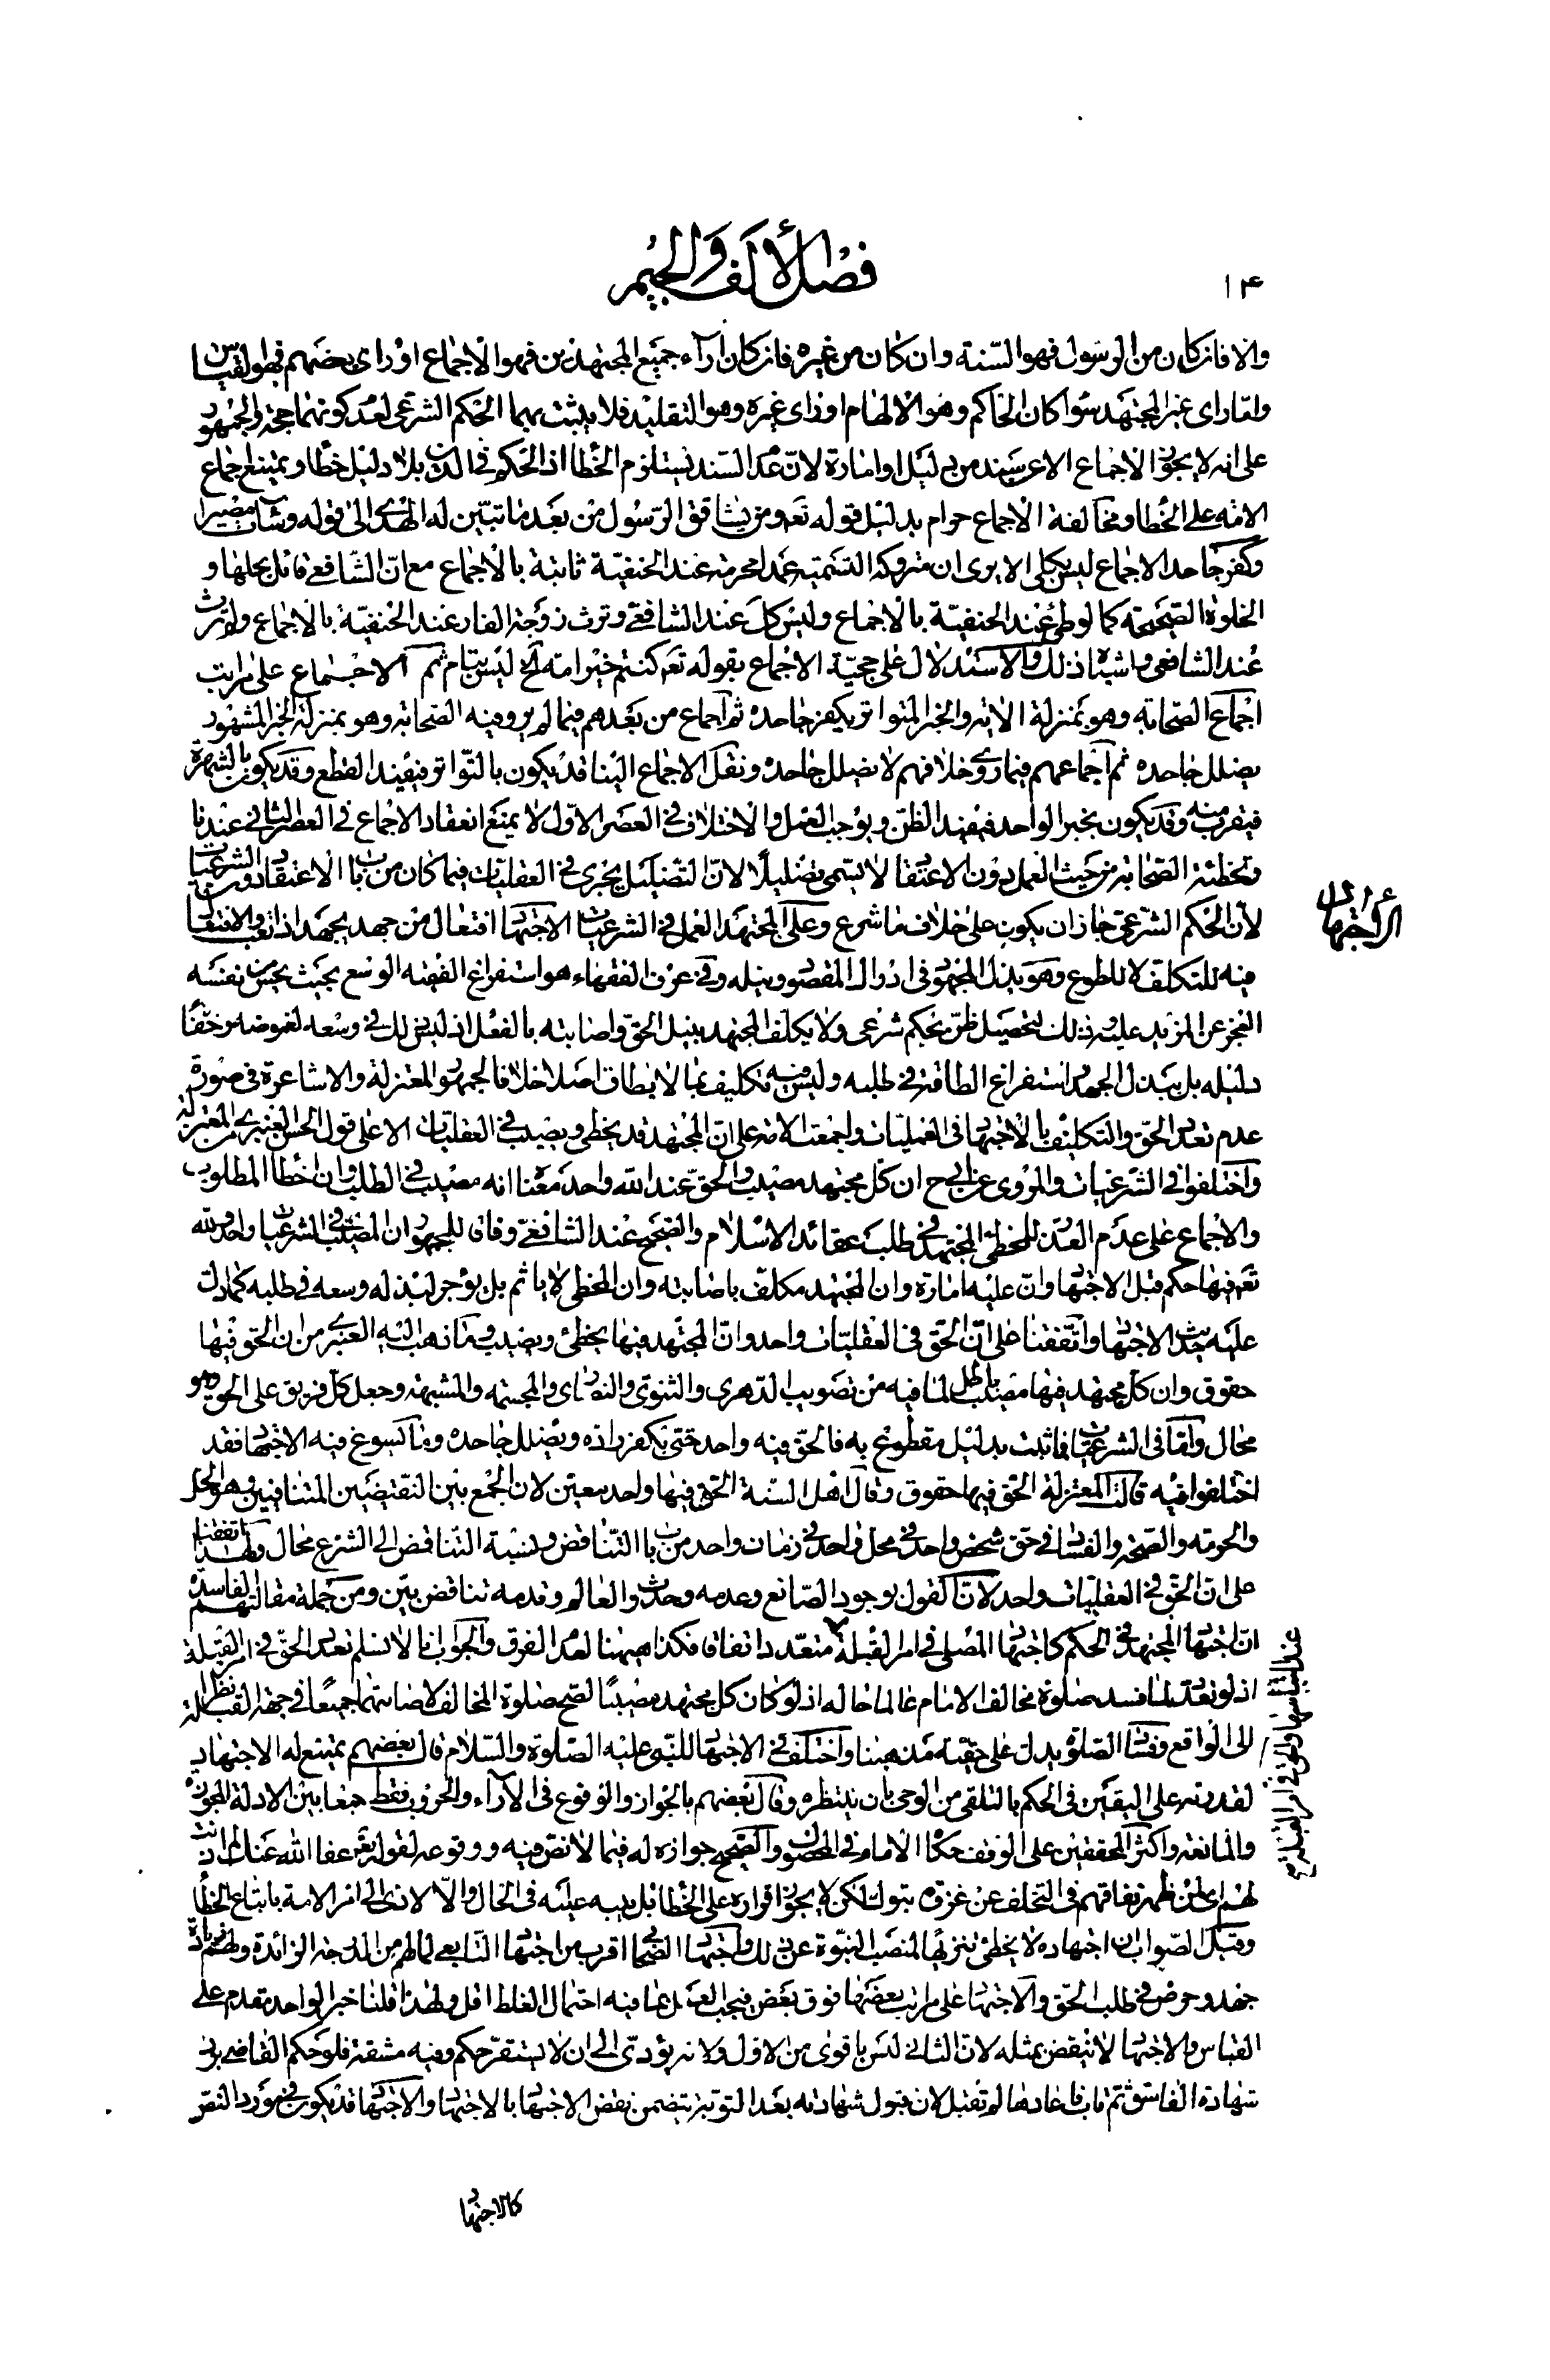 ١٤
فصل الألف والجيم
والا فان كان من الرسول فهو السنة وان كان من غيره فان كان آراء جميع المجتهدين فهو الاجماع او رأى بعضهم فهو القياس
واما رأى غير المجتهد سواء كان الحاكم وهو الالهام او رأى غيره وهو التقليد فلا يثبت بهما الحكم الشرعى لعدم كونهما حجة والجمهور
على انه لا يجوز الاجماع الا عن سند من دليل او امارة لان عدم السند يستلزم الخطأ اذ الحكم فى الدين بلا دليل خطأ ويمتنع اجماع
الامة على الخطأ ومخالفة الاجماع حرام بدليل قوله تعـ ومن يشاقق الرسول من بعد ما تبين له الهدى الى قوله وساءت مصيرا
وكفر جاحد الاجماع ليس بكلى الا يرى ان متروكة التسمية عمدا محرمة عند الحنفية ثابتة بالاجماع مع ان الشافعى قائل بحلها و
الخلوة الصحيحة كالوطئ عند الحنفية بالاجماع وليس كك عند الشافعى وترث زوجة الفار عند الحنفية بالاجماع ولا ترث
عند الشافعى وما شبه ذلك والاستدلال على حجية الاجماع بقوله تعـ كنتم خير امة الخ ليس بتام ثم الاجماع على مراتب
اجماع الصحابة وهو بمنزلة الاية والخبر المتواتر يكفر جاحده ثم اجماع من بعدهم فيما لم يرو فيه الصحابة وهو بمنزلة الخبر المشهور
يضلل جاحده ثم اجماعهم فيما روى خلافهم لا يضلل جاحده ونقل الاجماع الينا قد يكون بالتواتر فيفيد القطع وقد يكون بالشهرة
فيقرب منه وقد يكون بخبر الواحد فيفيد الظن ويوجب العمل والاختلاف فى العصر الاول لا يمنع انعقاد الاجماع فى العصر الثانى عندنا
وتخطئة الصحابة من حيث العمل دون الاعتقاد لا يسمى تضليلا لان التضليل يجرى فى العقليات فيما كان من باب الاعتقاد دون الشرعيات
لان الحكم الشرعى جاز ان يكون على خلاف ما شرع وعلى المجتهد العمل فى الشرعيات الاجتهاد افتعال من جهد يجهد اذا تعب والافتعال
الاجتهاد
فيه للتكلف لا للطوع وهو بذل المجهود فى ادراك المقصود ونيله وفى عرف الفقهاء هو استفراغ الفقيه الوسع بحيث يحس من نفسه
العجز عن المزيد عليه وذلك لتحصيل ظن بحكم شرعى ولا يكلف المجتهد بنيل الحق واصابته بالفعل اذ ليس ذلك فى وسعه لغموضه وخفاء
دليله بل ببذل الجهد واستفراغ الطاقة فى طلبه وليس فيه تكليف بما لا يطاق اصلا خلافا لجمهور المعتزلة والاشاعرة فى صورة
عدم تعدد الحق والتكليف بالاجتهاد فى العمليات واجمعت الامة على ان المجتهد قد يخطئ ويصيب فى العقليات الا على قول الحسن العنبرى من المعتزلة
واختلفوا فى الشرعيات والمروى عن ابى ح ان كل مجتهد مصيب والحق عند الله واحد معناه انه مصيب فى الطلب وان اخطأ المطلوب
والاجماع على عدم العذر للمخطئ المجتهد فى طلب عقائد الاسلام والصحيح عند الشافعى وفاقا للجمهور ان المصيب فى الشرعيات واحد ولله
تعـ فيها حكم قبل الاجتهاد وان عليه امارة وان المجتهد مكلف باصابته وان المخطئ لا يأثم بل يؤجر لبذله وسعه فى طلبه كما دلت
عليه حديث الاجتهاد واتفقنا على ان الحق فى العقليات واحد وان المجتهد فيها يخطئ ويصيب وما ذهب اليه العنبرى من ان الحق فيها
حقوق وان كل مجتهد فيها مصيب باطل لما فيه من تصويب الدهرى والثنوى والنصارى والمجسمة والمشبهة وجعل كل فريق على الحق وهو
محال واما فى الشرعيات فما ثبت بدليل مقطوع به فالحق فيه واحد حتى يكفر راده ويضلل جاحده وما يسوغ فيه الاجتهاد فقد
اختلفوا فيه قالت المعتزلة الحق فيها حقوق وقال اهل السنة الحق فيها واحد معين لان الجمع بين النقيضين المتنافيين وهو الحل
والحرمة والصحة والفساد فى حق شخص واحد فى محل واحد فى زمان واحد من باب التناقض ونسبة التناقض الى الشرع محال ولهذا اتفقنا
على ان الحق فى العقليات واحد لان القول بوجود الصانع وعدمه وحدث العالم وقدمه تناقض بين ومن جملة مقالتهم الفاسدة
ان اجتهاد المجتهد فى الحكم كاجتهاد المصلى فى امر القبلة متعدد اتفاقا فكذا ههنا لعدم الفرق والجواب انا لا نسلم تعدد الحق فى امر القبلة
اذ لو تعدد لما فسد صلوة مخالف الامام عالما حاله اذ لو كان كل مجتهد مصيبا لصح صلوة المخالف لاصابتهما جميعا فى جهة القبلة نظرا
الى الواقع وفساد الصلوة يدل على حقية مذهبنا واختلف فى الاجتهاد للنبى عليه الصلوة والسلام قال بعضهم يمتنع له الاجتهاد
لقدرته على اليقين فى الحكم بالتلقى من الوحى بان ينتظره وقال بعضهم بالجواز والوقوع فى الآراء والحروب فقط جمعا بين الادلة المجوزة
والمانعة واكثر المحققين على الوقف حكاه الامام فى المحصول والصحيح جوازه له فيما لا نص فيه ووقوعه لقوله تعـ عفا الله عنك لم اذنت
لهم اى لمن ظهر نفاقهم فى التخلف عن غزوة تبوك لكن لا يجوز اقراره على الخطأ بل ينبه عليه فى الحال والا لادى الى امر الامة باتباع الخطأ
وقيل الصواب ان اجتهاده لا يخطئ تنزيها لمنصب النبوة عن ذلك واجتهاد الصحابى اقرب من اجتهاد التابعى لما لهم من الدرجة الزائدة ولهم زيادة
جهد وحرص فى طلب الحق والاجتهاد على مراتب بعضها فوق بعض فيجب العمل بما فيه احتمال الغلط اقل ولهذا قلنا خبر الواحد مقدم على
القياس والاجتهاد لا ينقض بمثله لان الثانى ليس باقوى من الاول ولانه يؤدى الى ان لا يستقر حكم وفيه مشقة فلو حكم القاضى برد
شهادة الفاسق ثم تاب فاعادها لم تقبل لان قبول شهادته بعد التوبة يتضمن نقض الاجتهاد بالاجتهاد والاجتهاد قد يكون فى مورد النص
كالاجتهاد